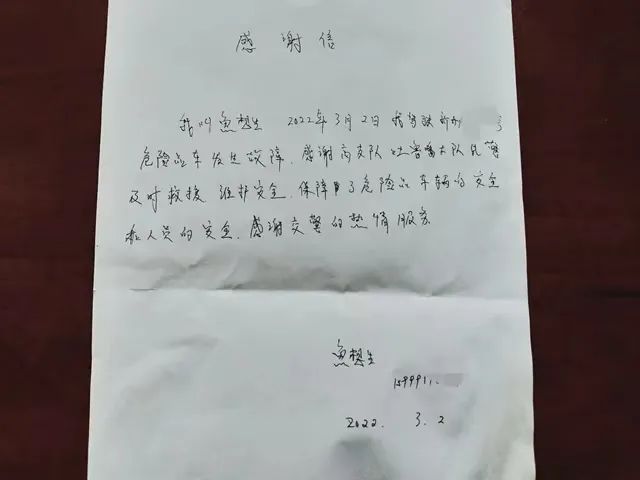 感谢信
我叫鱼想生 2022年3月2日我驾驶新
危险品车发生故障.感谢高支队吐鲁番大队民警
及时救援 维护安全.保障了危险品车辆的安全
和人员的安全.感谢交警的热情服务
鱼想生
159991
2022. 3.2